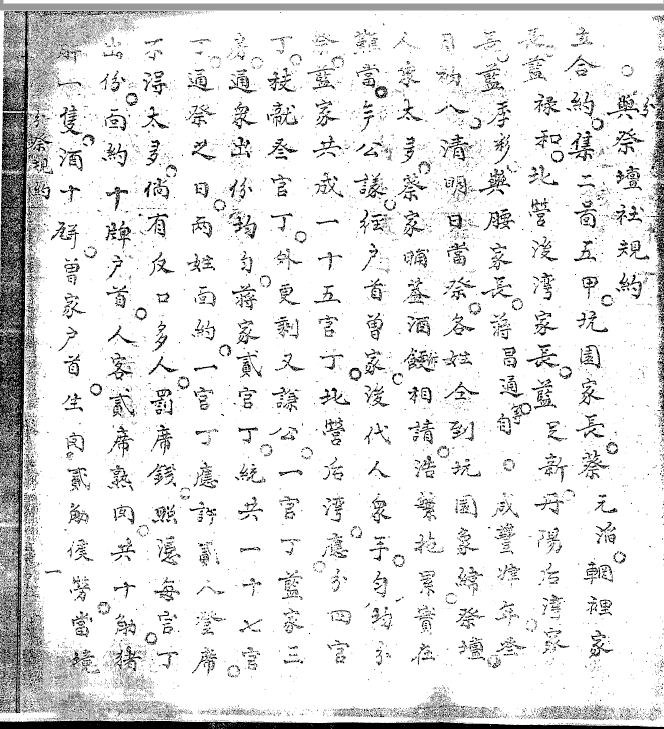 分與祭壇社規約
立合約集二畐五甲坑園家長蔡元滔 輞裡家
長藍祿和北營後湾家長藍足新丹陽后湾家
長藍季彩與腰家長蔣昌通等自 咸豐 年叁
月初八清明日當祭各姓仝到坑園象緯祭壇
人家太多蔡家晡益酒饌相請浩繁拖累實在
難當今公議經户首曽家後代人衆手勻均分
祭藍家共成一十五官丁北營后湾應分四官
丁技献叁官丁外更剩又謙公一官丁藍家三
房通衆出份均勻蔣家貳官丁統共一十七官
丁通祭之日两姓面約一官丁應許貳人登席
不得太多倘有反口多人罰席銭照 每官丁
出份面約十牌户首人客貳席熟肉共十觔猪
肝一隻酒十 曽家户首生肉貳觔侯勞當境
分祭規約
一